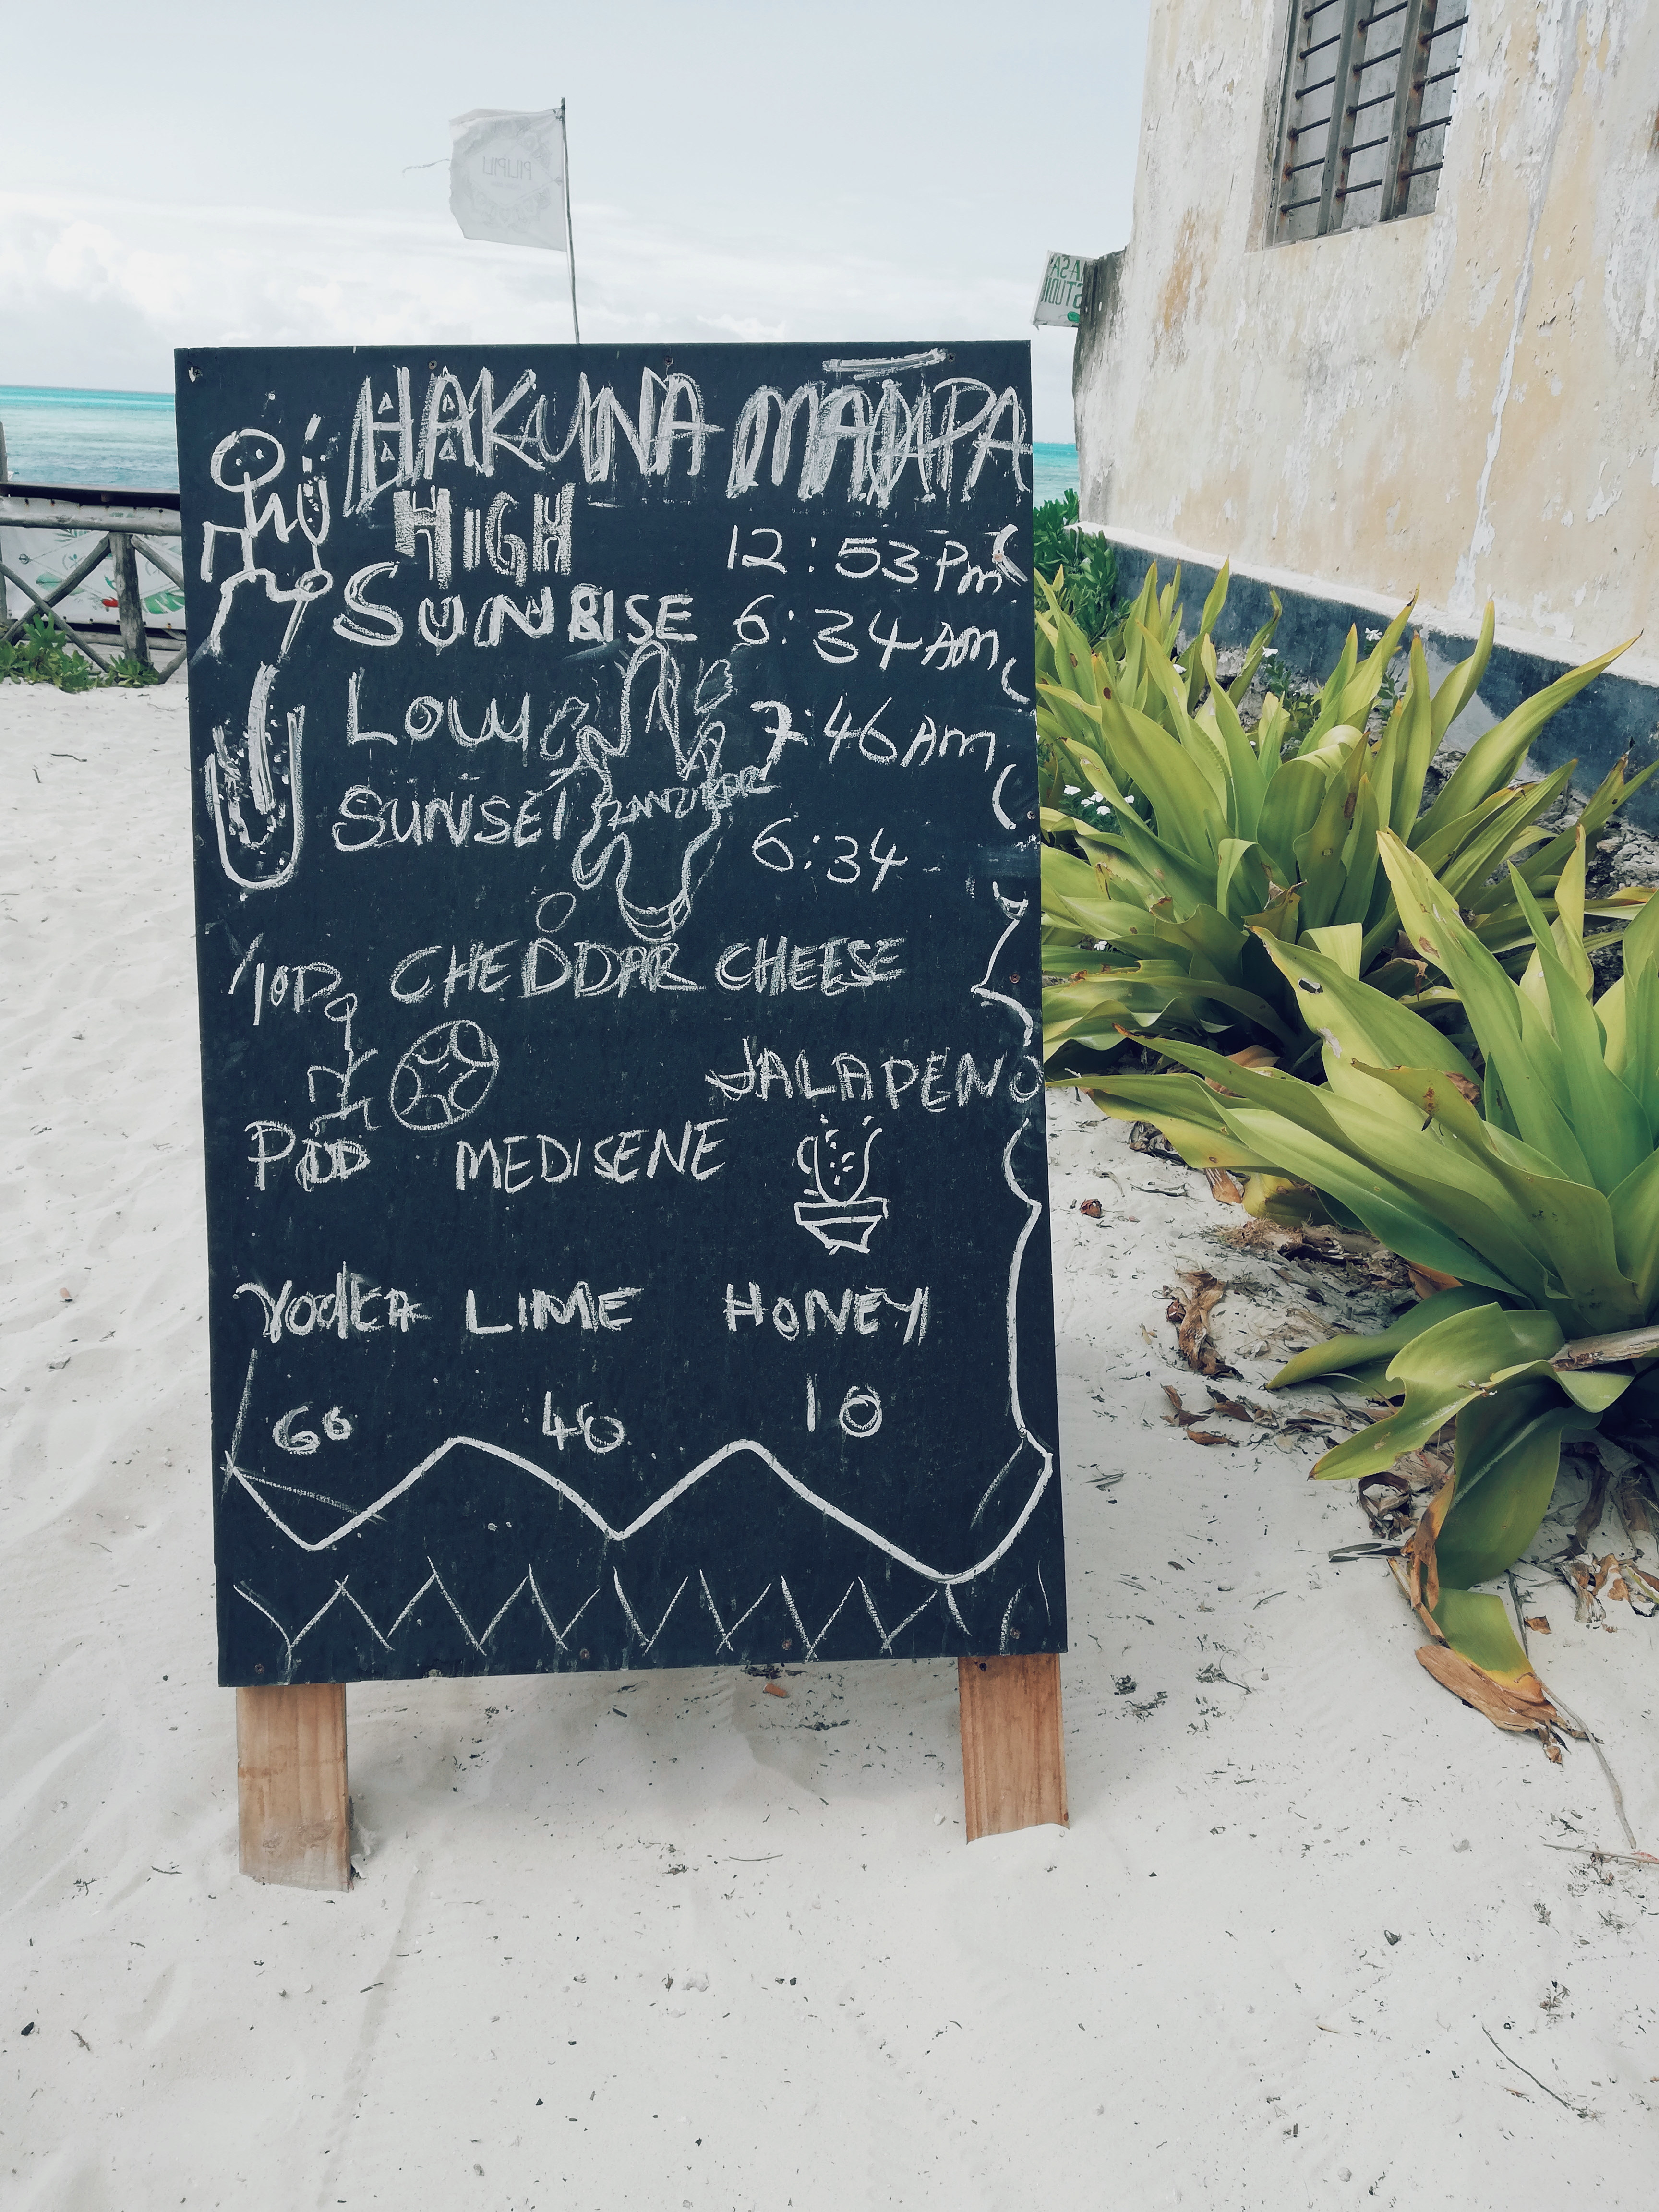 PILIPILI
MASA
STUDI
HAKUNA MATATA
HIGH 12:53 PM
SUNRISE 6:34 AM
LOW 7:46 AM
SUNSET ZANZIBAR 6:34
CHEDDAR CHEESE
JALAPENO
MEDISENE
VODKA LIME HONEY
60 40 10